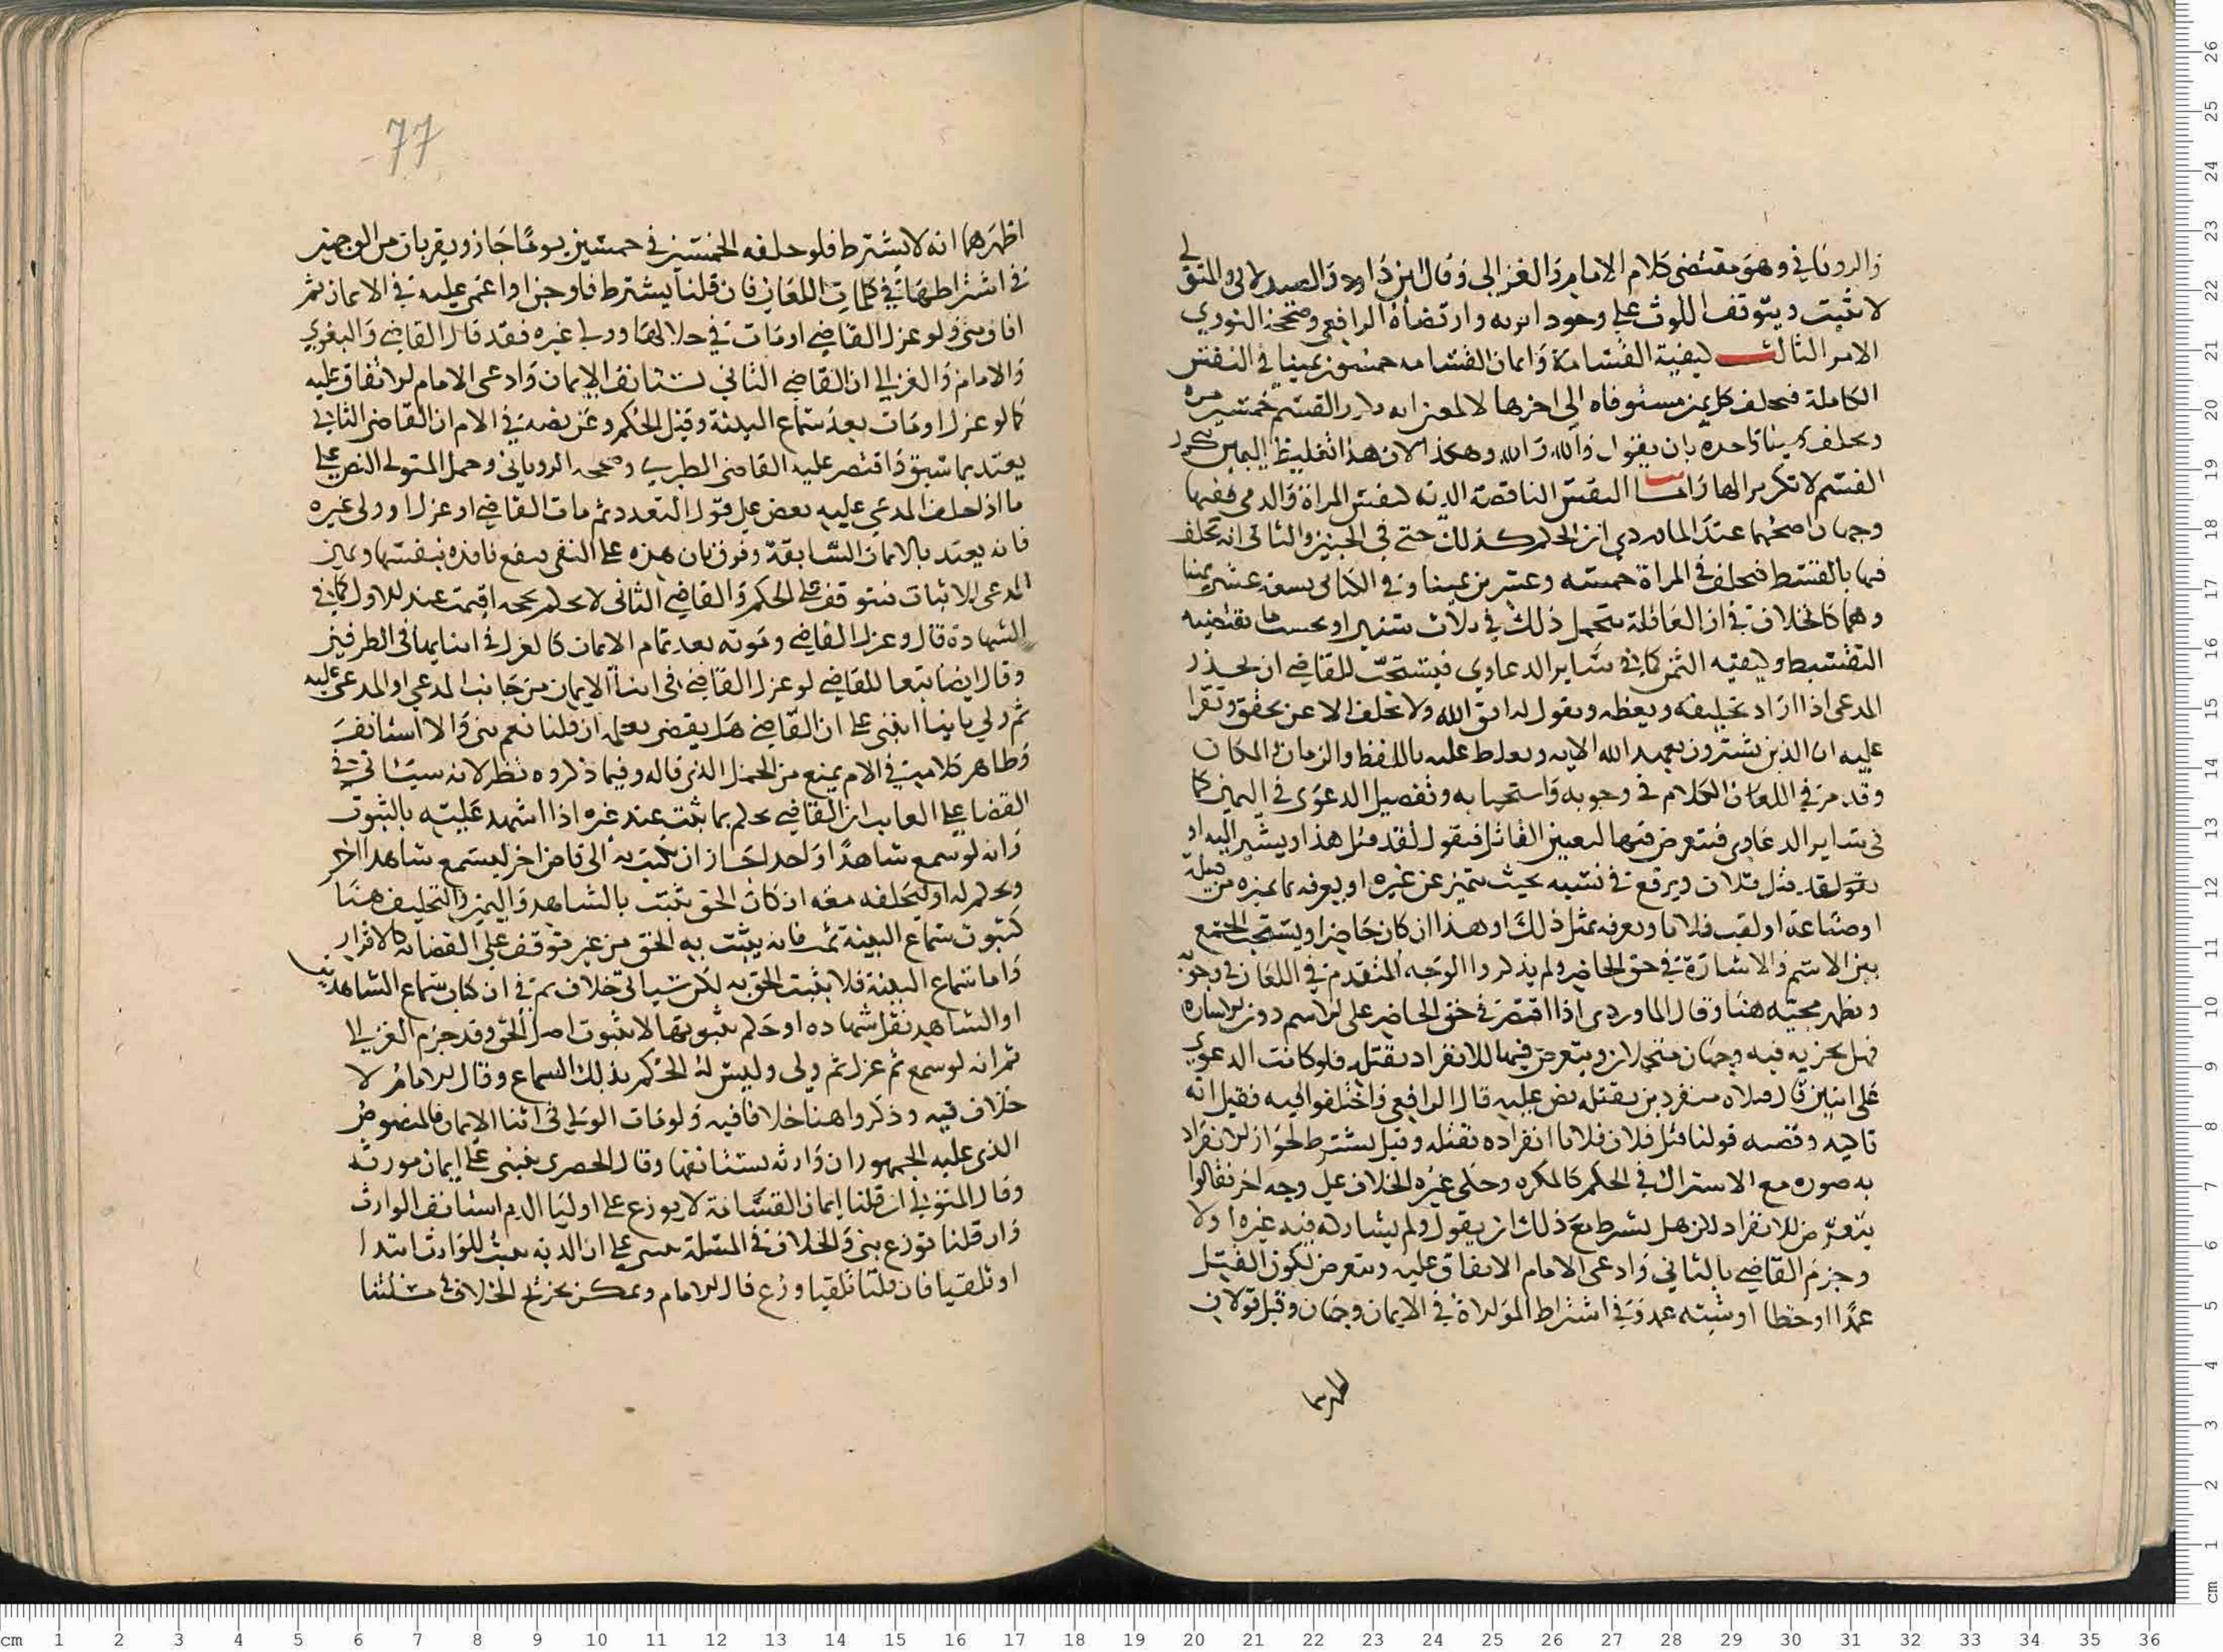 والروياني وهو مقتضى كلام الامام والغزالي وقال ابن داود والصيدلاني والمتولي
لا يثبت ويتوقف اللوث على وجود اثر به وارتضاه الرافعي وصححه النووي
الامر الثالث كيفية القسامة وايمان القسامه خمسون يمينا في النفس
الكاملة فيحلف كل يمين مستوفاه الى اخرها لا بمعنى انه يكرر القسم خمسين مره
ويحلف يمينا واحده بان يقول والله والله وهكذا لان هذا تغليظ اليمين
القسم لا تكرير لها واما النفس الناقصة الدية كنفس المراة والذمي ففيها
وجهان اصحهما عند الماوردي ان الحكم كذلك حتى في الجنين والثاني انه يحلف
فيها بالقسط فيحلف في المراة خمسه وعشرين يمينا وفي الكتابي سبعة عشر يمينا
وهما كالخلاف في ان العاقلة تتحمل ذلك في ثلاث سنين او بحسب ما يقتضيه
التقسيط وكيفيه اليمين كما في سائر الدعاوي فيستحب للقاضي ان يحذر
المدعي اذا اراد تحليفه ويعظه ويقول له اتق الله ولا تحلف الا عن تحقق ويقرا
عليه ان الذين يشترون بعهد الله الايه ويغلظ عليه باللفظ والزمان والمكان
وقد مر في اللعان الكلام في وجوبه واستحبابه وتفصيل الدعوى في اليمين كما
في ساير الدعاوي فيتعرض فيها لتعيين القاتل فيقول لقد قتل هذا ويشير اليه او
يقول لقد قتل فلان ويرفع في نسبه بحيث يتميز عن غيره او يعرفه بما يميزه من قبيلة
او صناعة او لقب فلانا ويعرفه بمثل ذلك او هذا ان كان حاضرا ويستحب الجمع
بين الاسم والاشارة في حق الحاضر ولم يذكروا الوجه المتقدم في اللعان في وجوبه
ويظهر مجيئه هنا وقال الماوردي اذا اقتصر في حق الحاضر على الاسم دون الاشاره
فهل يجزيه فيه وجهان ويتعرض فيها للانفراد بقتله فلو كانت الدعوى
على اثنين قال قتلاه منفردين بقتله نص عليه قال الرافعي واختلفوا فيه فقيل انه
تاكيد وقضيه قولنا قتل فلان فلانا انفراده بقتله وقيل يشترط لجواز الانفراد
به صوره مع الاشتراك في الحكم كالمكره وحكى غيره الخلاف على وجه اخر فقالوا
يتعرض للانفراد لكن هل يشرط مع ذلك ان يقول ولم يشاركه فيه غيره او لا
وجزم القاضي بالثاني وادعى الامام الاتفاق عليه ويتعرض لكون القتل
عمدا او خطا او شبه عمد وفي اشتراط الموالاة في الايمان وجهان وقيل قولان
اظهرهما
77
اظهرهما انه لا يشترط فلو حلفه الخمسين في خمسين يوما جاز ويقربان من الوجهين
في اشتراطها في كلمات اللعان فان قلنا يشترط فلو جن او اغمي عليه في الايمان ثم
افاق بنى ولو عزل القاضي او مات في خلالها وولي غيره فقد قال القاضي والبغوي
والامام والغزالي ان القاضي الثاني يستانف الايمان وادعى الامام الاتفاق عليه
كما لو عزل او مات بعد سماع البينة وقبل الحكم وعن نصه في الام ان القاضي الثاني
يعتد بما سبق واقتصر عليه القاضي الطبري وصححه الروياني وحمل المتولي النص على
ما اذا حلف المدعى عليه بعض على قول التعدد ثم مات القاضي او عزل او ولى غيره
فانه يعتد بالايمان السابقة وفرق بان هذه على النفي فتقع نافذه بنفسها ويمين
المدعي للاثبات فتتوقف على الحكم والقاضي الثاني لا يحكم بحجه اقيمت عند الاول كما في
الشهادة قال وعزل القاضي وموته بعد تمام الايمان كالعزل في اثنايها في الطرفين
وقال ايضا تبعا للقاضي لو عزل القاضي في اثنا الايمان من جانب المدعي او المدعى عليه
ثم ولي ثانيا انبنى على ان القاضي هل يقضي بعلمه ان قلنا نعم بنى والا استانف
وظاهر كلاميه في الام يمنع من الحمل الذي قاله وفيما ذكروه نظر لانه سياتي في
القضا على الغايب ان القاضي يحكم بما ثبت عند غيره اذا اشهد عليه بالثبوت
وانه لو سمع شاهدا واحدا جاز ان يكتب به الى قاض اخر ليسمع شاهدا اخر
ويحكم له او ليحلفه معه ان كان الحق يثبت بالشاهد واليمين والتحليف هنا
كثبوت سماع البينة ثم فانه يثبت به الحق من غير توقف على القضا به كالاقرار
واما سماع البينة فلا يثبت الحق به لكن سياتي خلاف ثم في ان كتاب سماع الشاهدين
او الشاهد نقل شهاده او حكم بثبوتها لا بثبوت اصل الحق وقد جزم الغزالي
ثم انه لو سمع ثم عزل ثم ولى وليس له الحكم بذلك السماع وقال الامام لا
خلاف فيه وذكروا هنا خلافا فيه ولو مات الولي في اثنا الايمان فالمنصوص
الذي عليه الجمهور ان وارثه يستانفها وقال الخضري يبني على ايمان مورثه
وقال المتولي ان قلنا ايمان القسامة لا يوزع على اوليا الدم استانف الوارث
وان قلنا توزع بنى والخلاف في المسلة مبني على ان الديه تثبت للوارث ابتدا
او تلقيا فان قلنا تلقيا وزع قال الامام ويمكن تخريج الخلاف في مسلتنا